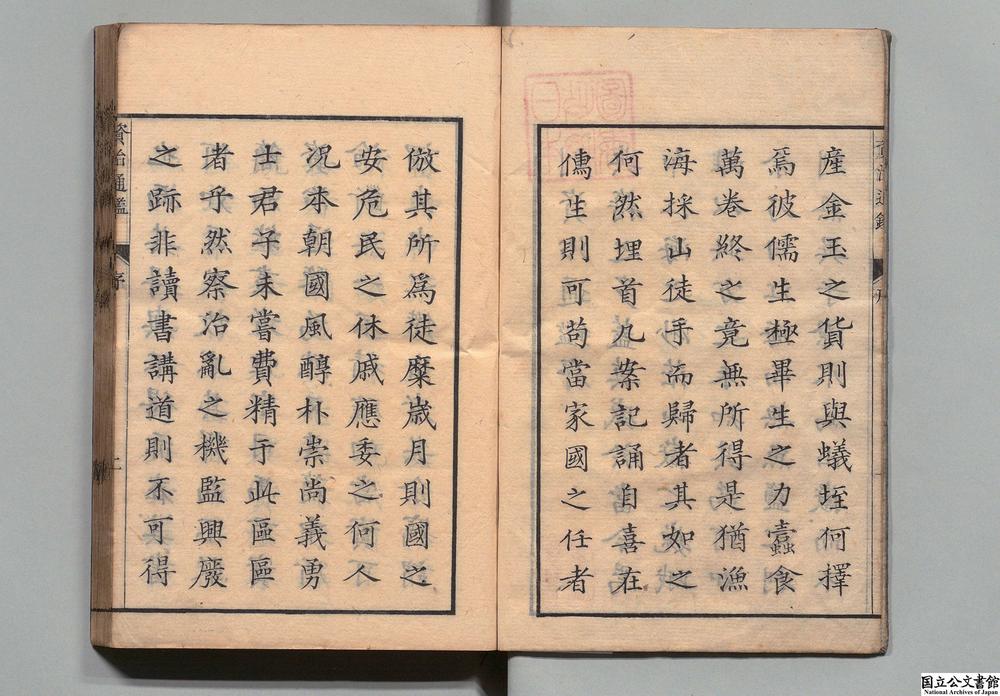 産金玉之貨則與蟻垤何擇
焉彼儒生極畢生之力蠹食
萬巻終之竟無所得是猶漁
海採山徒手而歸者其如之
何然埋首几案記誦自喜在
儒生則可苟當家國之任者
倣其所爲徒糜歳月則國之
安危民之休戚應委之何人
况本朝國風醇朴崇尚義勇
士君子未嘗費精于此區區
者乎然察治亂之機監興廢
之跡非讀書講道則不可得
資治通鑑 序
国立公文書館
National Archives of Japan